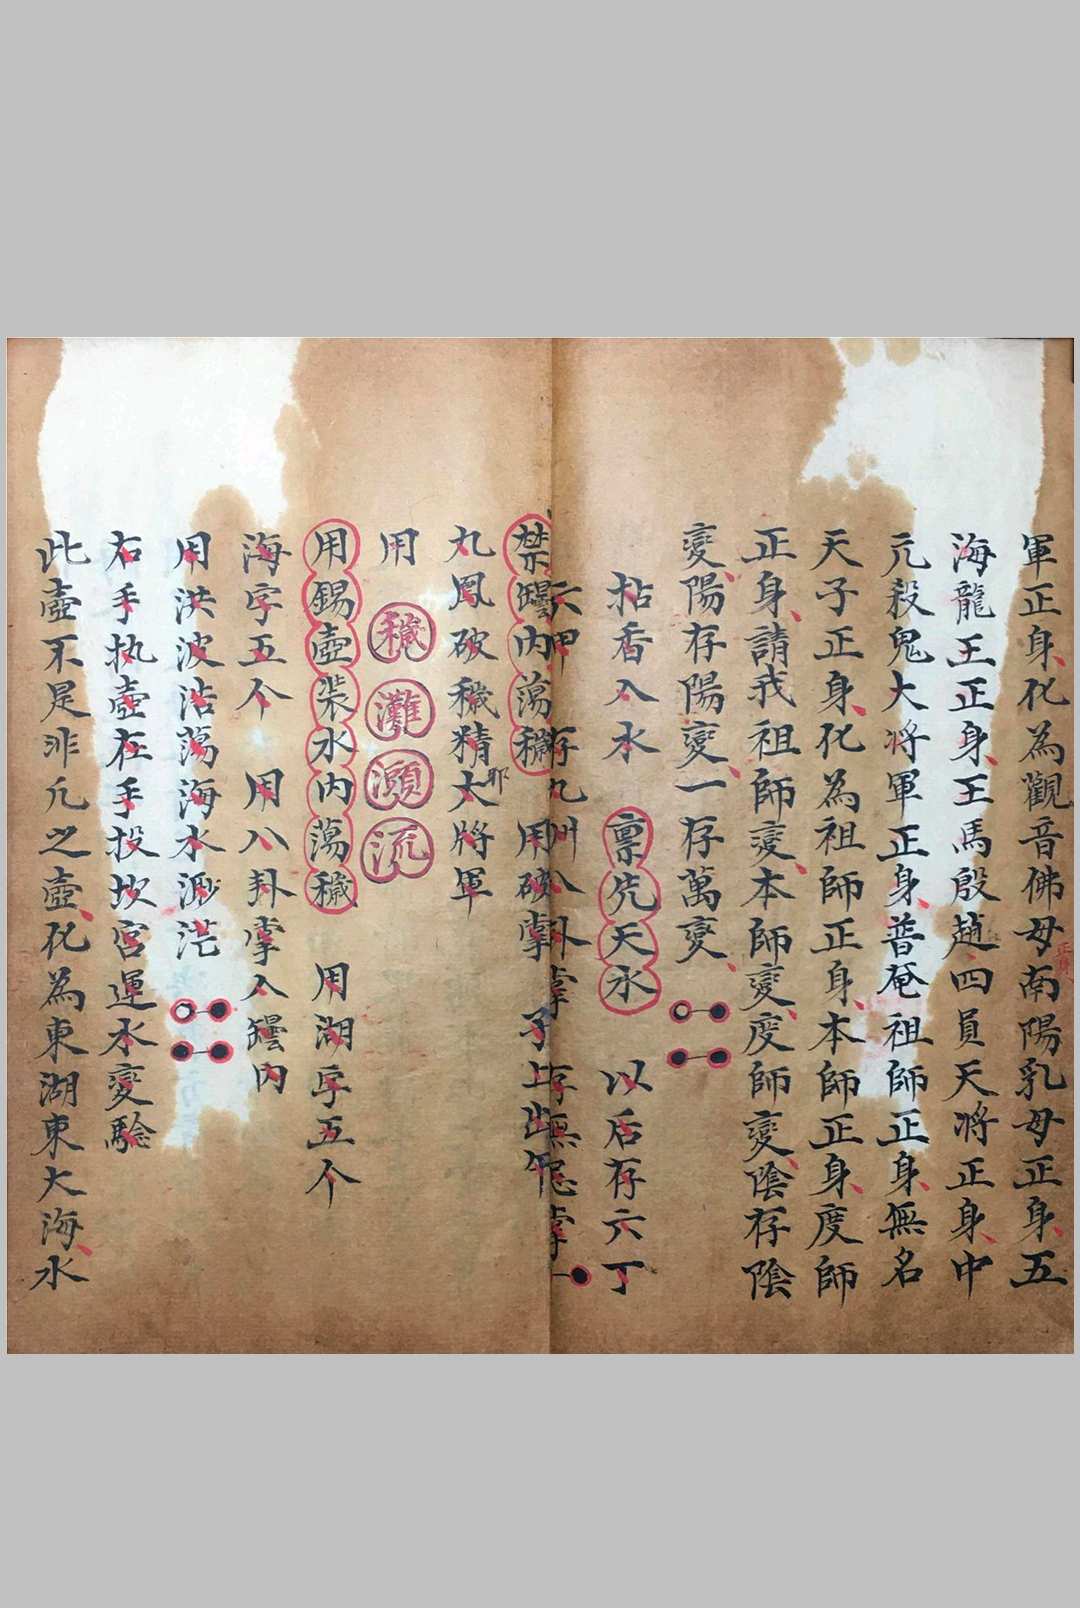 軍正身化為觀音佛母南陽乳母正身五
海龍王正身王馬殷趙四員天将正身中
元殺鬼大将軍正身普奄祖師正身無名
天子正身化為祖師正身本師正身度師
正身請我祖師变本師變度師變陰存陰
變陽存陽变一存萬变
拈香入水 禀先天水 以后存六丁
六甲 存九州八卦掌 存無忌掌
禁罎内蕩穢 用破掌 子上出午
九鳳破穢精邪大將軍
用 穢 灘 瀬 流
用錫壺裝水内蕩穢 用湖字五个
海字五个 用八卦掌入罎内
用洪波浩蕩海水渺茫
右手执壺在手投坎宫運水变驗
此壺不是非凡之壺化為東湖東大海水